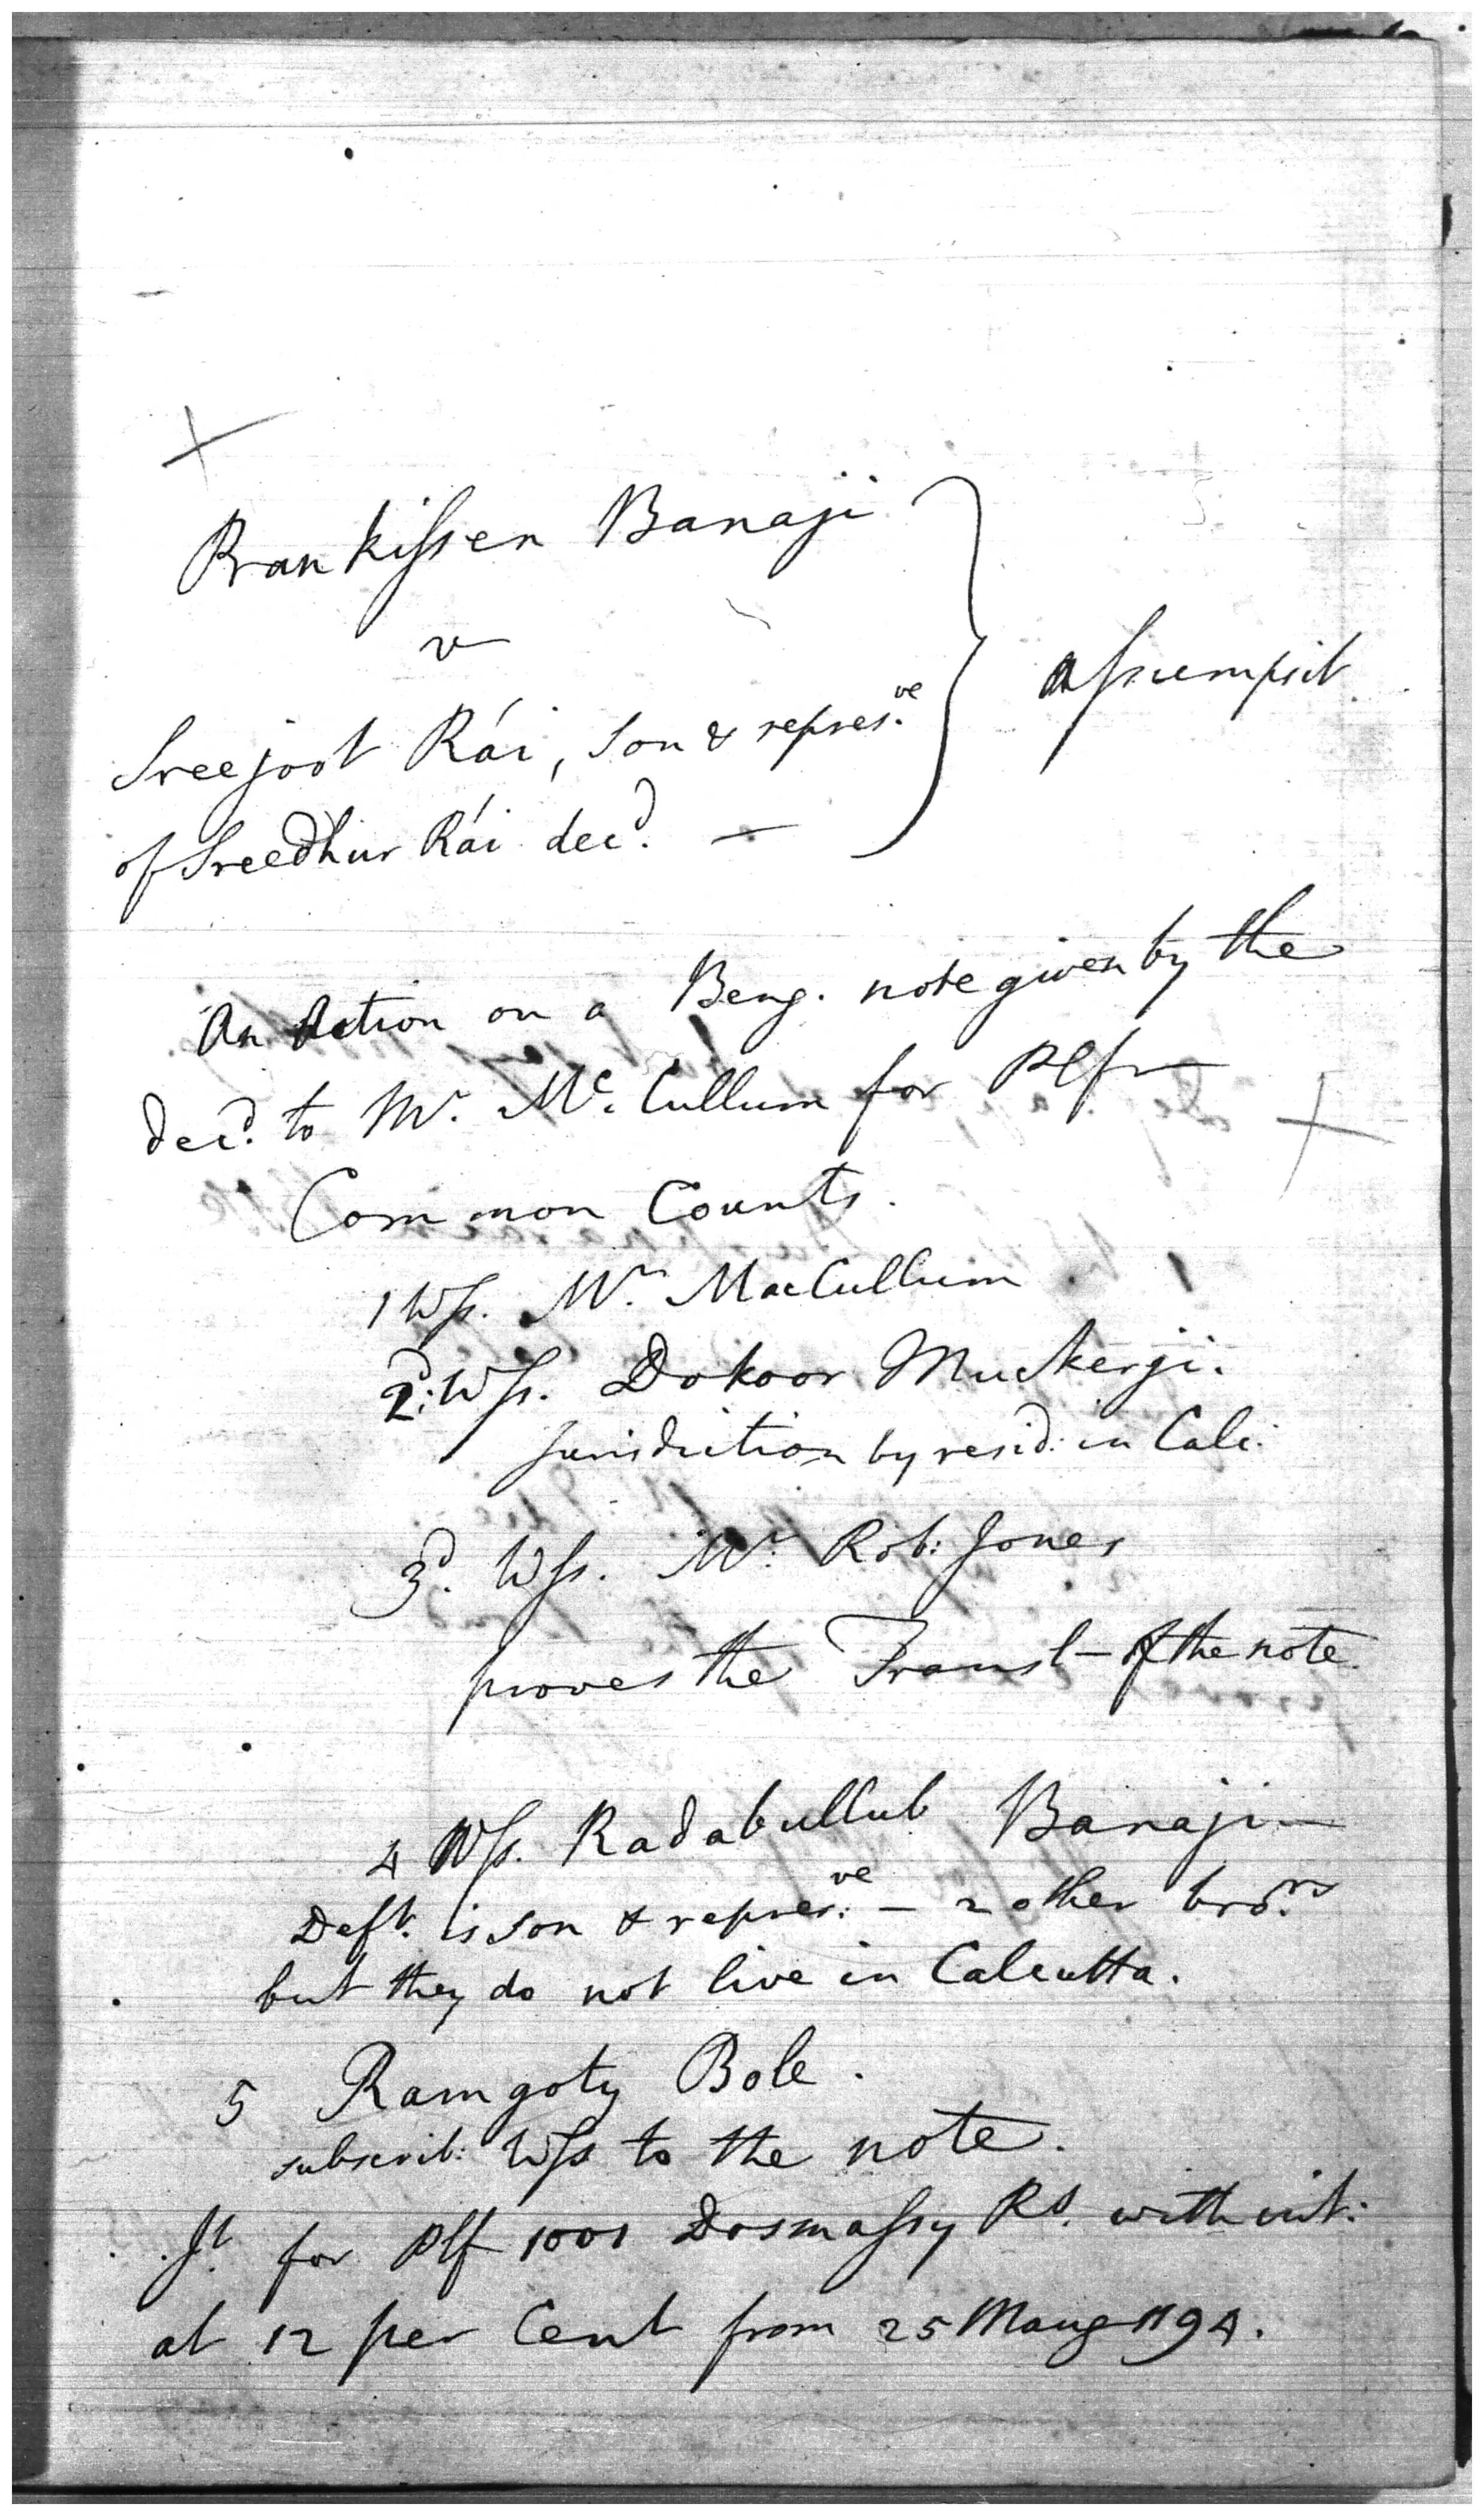 Prankissen Banaji
v
Sreejoot Rái, son & repres.ve
of Sreedhur Rái decd. —
assumpsit
An Action on a Beng. note given by the
decd. to Mr. Mc. Cullum for Plf
Common Counts.
1 Wss. Mr. MacCullum
2d. Wss. Dokoor Muckerji.
jurisdiction by resid: in Calc:
3d. Wss. Mr. Rob: Jones
proves the Transl— of the note.
4 Wss. Radabullub Banaji—
Deft. is son & repres.ve — 2 other bro.rs
but they do not live in Calcutta.
5 Ramgoty Bose.
subscrib: Wss to the note.
Jt. for Plf 1001 Dosmassy Rs. with int:
at 12 per Cent from 25 Maug 1194.